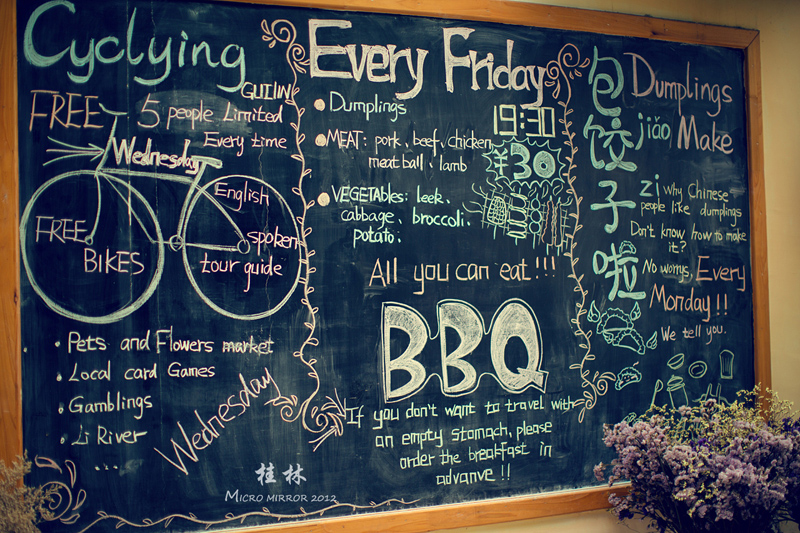 Cyclying
GUILIN
FREE 5 people Limited
Every time
Wednesday
English
FREE spoken
BIKES tour guide
• Pets and Flowers market
• Local card Games
• Gamblings
• Li River
...
Wednesday
Every Friday
Dumplings
19:30
MEAT: pork、beef、chicken
meatball、lamb
¥30
VEGETABLES: leek、
cabbage、broccoli、
potato:
All you can eat!!!
BBQ
If you don't want to travel with
an empty stomach, please
order the breakfast in
advanve!!
包饺子啦
Dumplings
jiǎo Make
zi why Chinese
people like dumplings
Don't know how to make
it?
No worrys, Every
Monday!!
We tell you.
桂林
MICRO MIRROR 2012